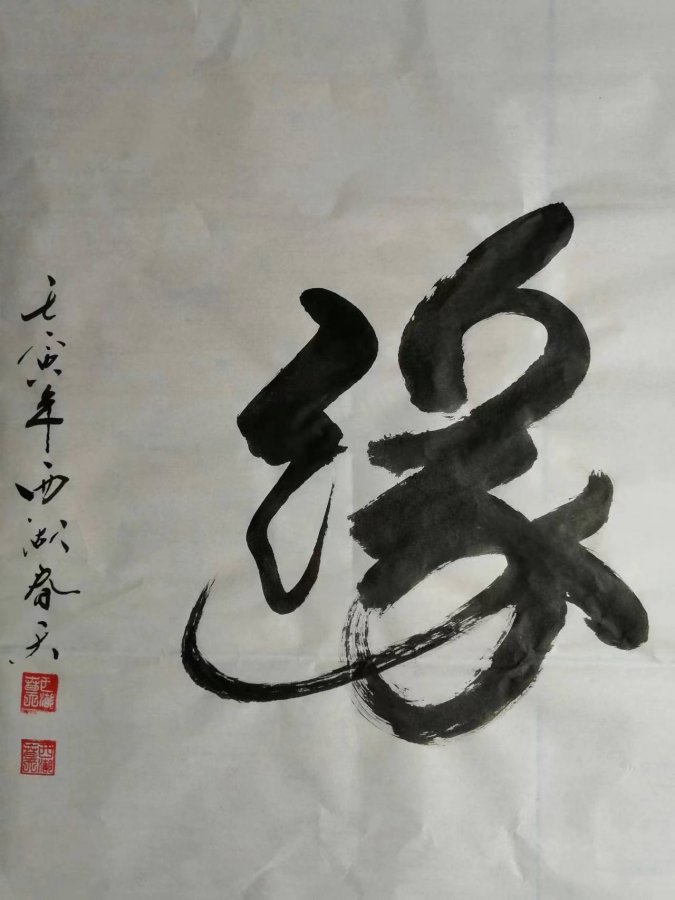 缘
壬寅年西湖春天